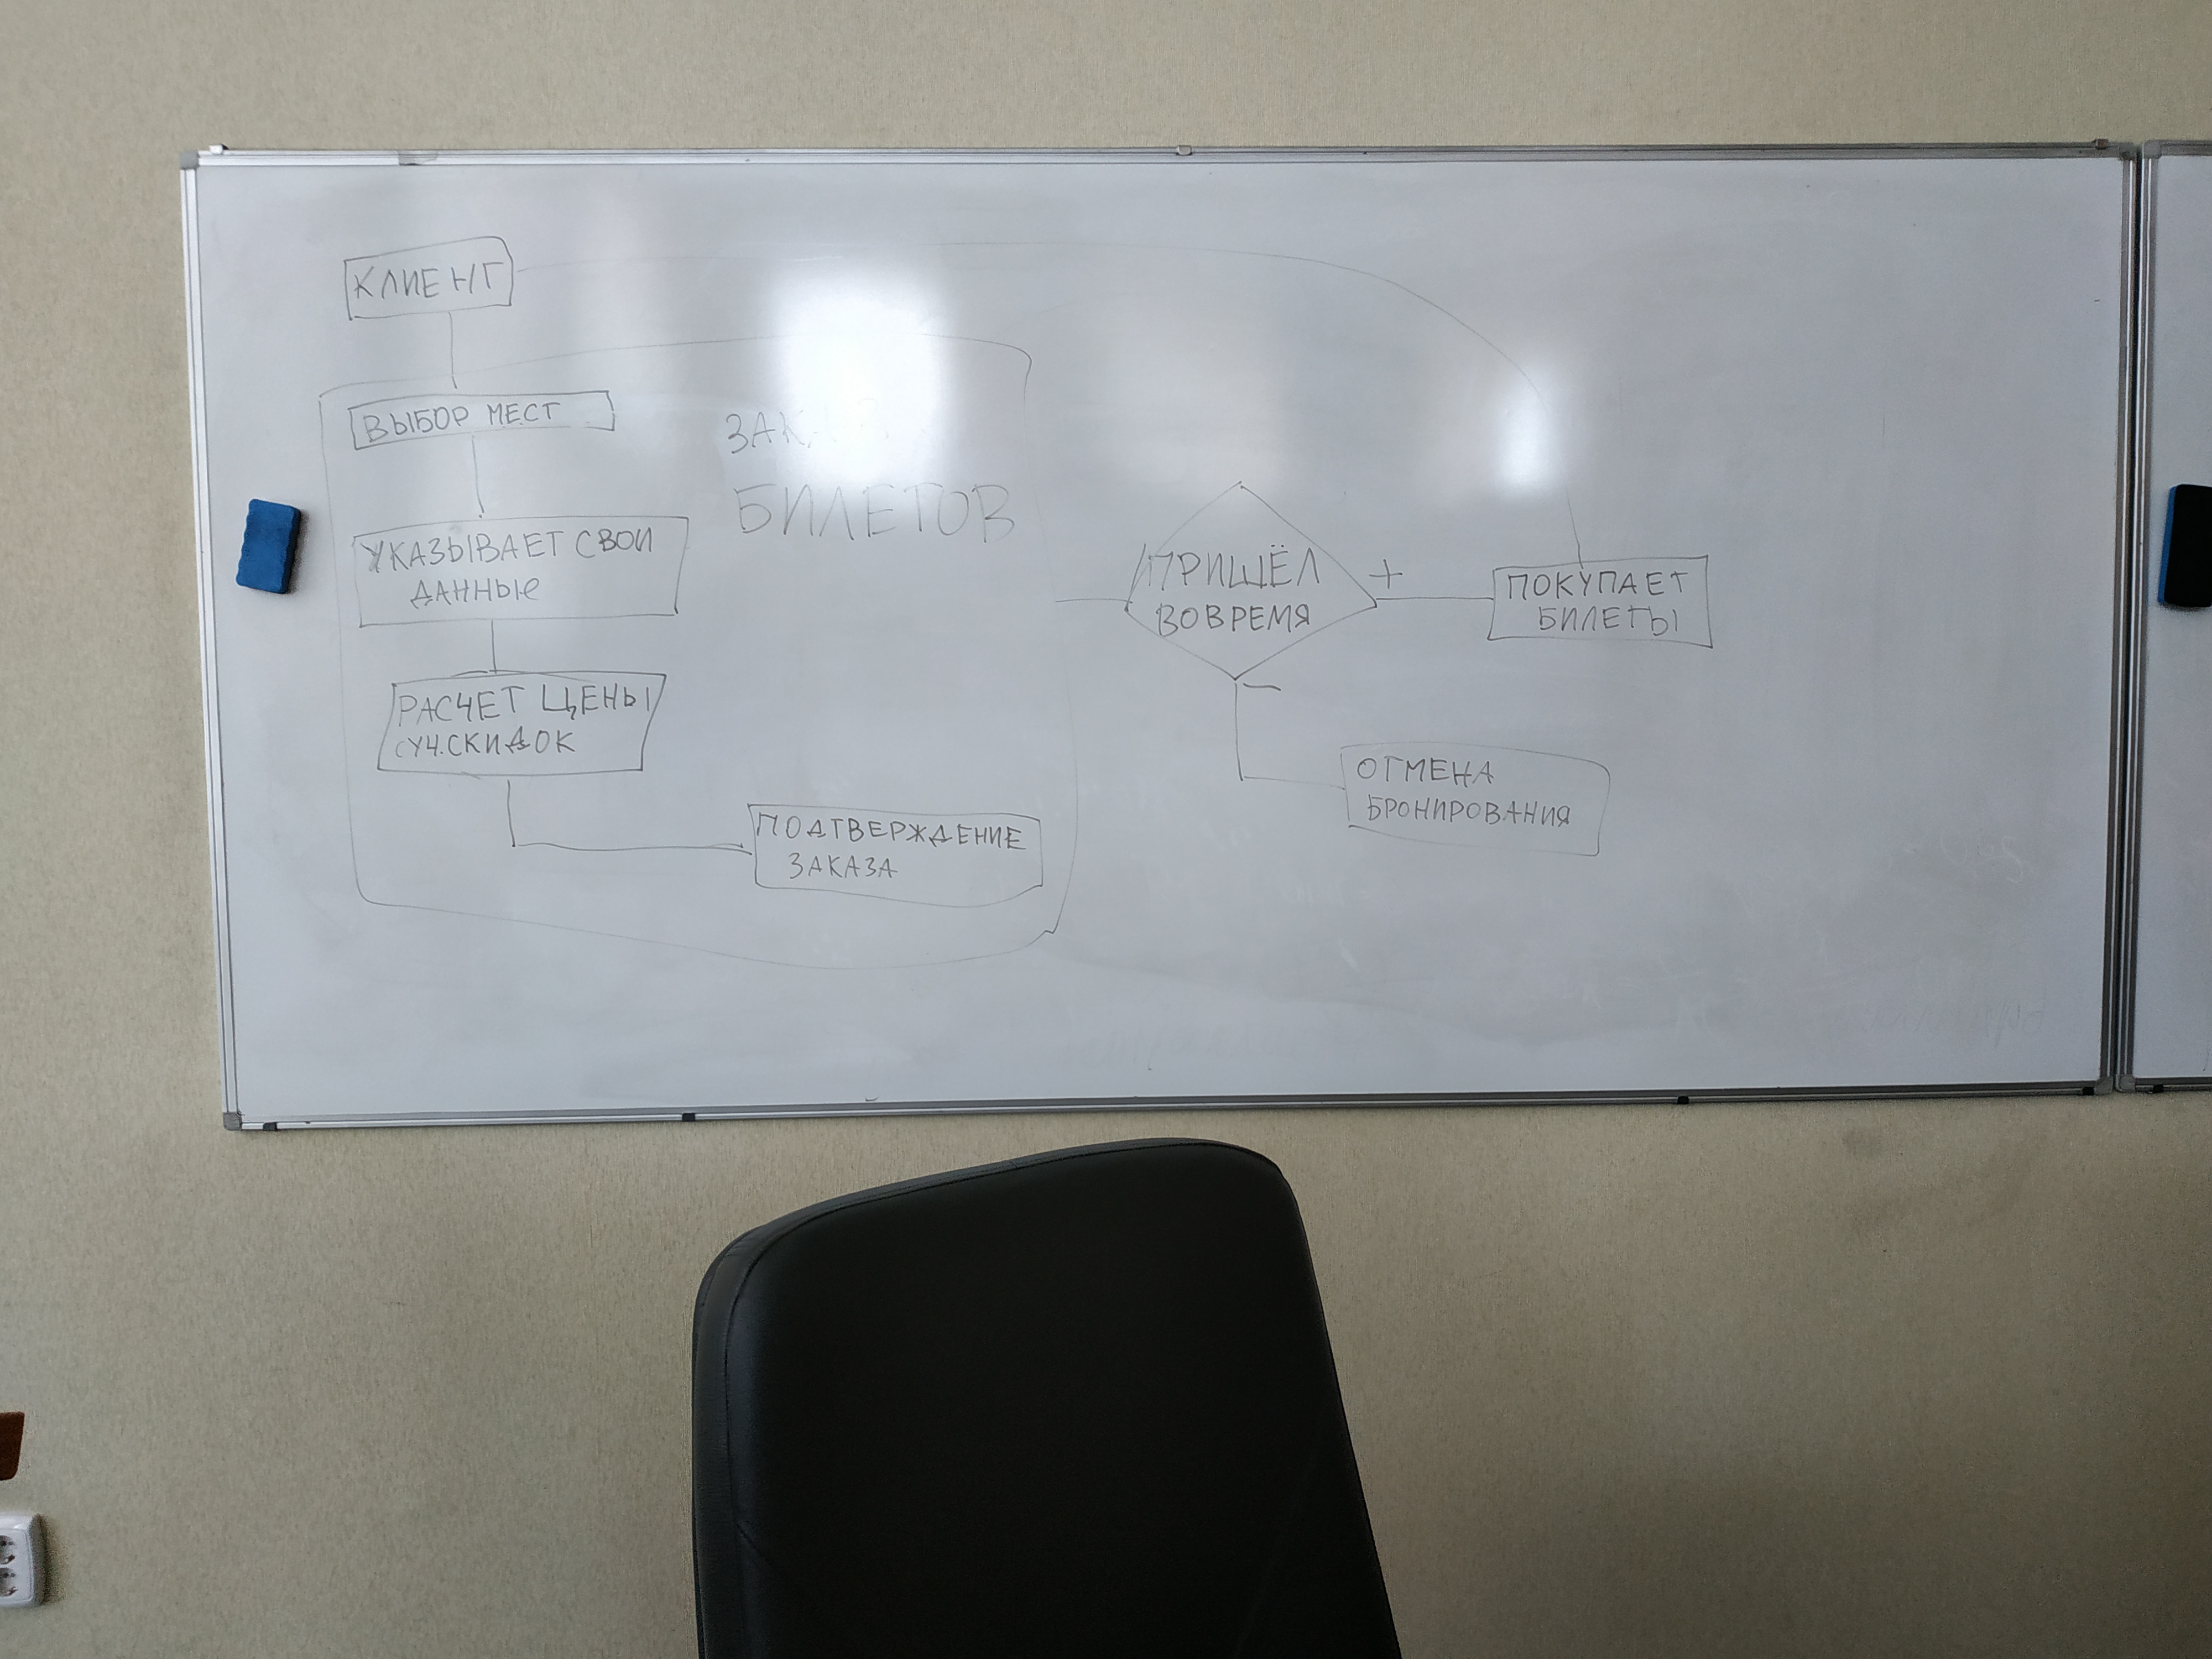 КЛИЕНТ
ВЫБОР МЕСТ
ЗАКАЗ
БИЛЕТОВ
УКАЗЫВАЕТ СВОИ
ДАННЫЕ
РАСЧЕТ ЦЕНЫ
С УЧ. СКИДОК
ПОДТВЕРЖДЕНИЕ
ЗАКАЗА
ПРИШЁЛ
ВОВРЕМЯ
+
ПОКУПАЕТ
БИЛЕТЫ
−
ОТМЕНА
БРОНИРОВАНИЯ